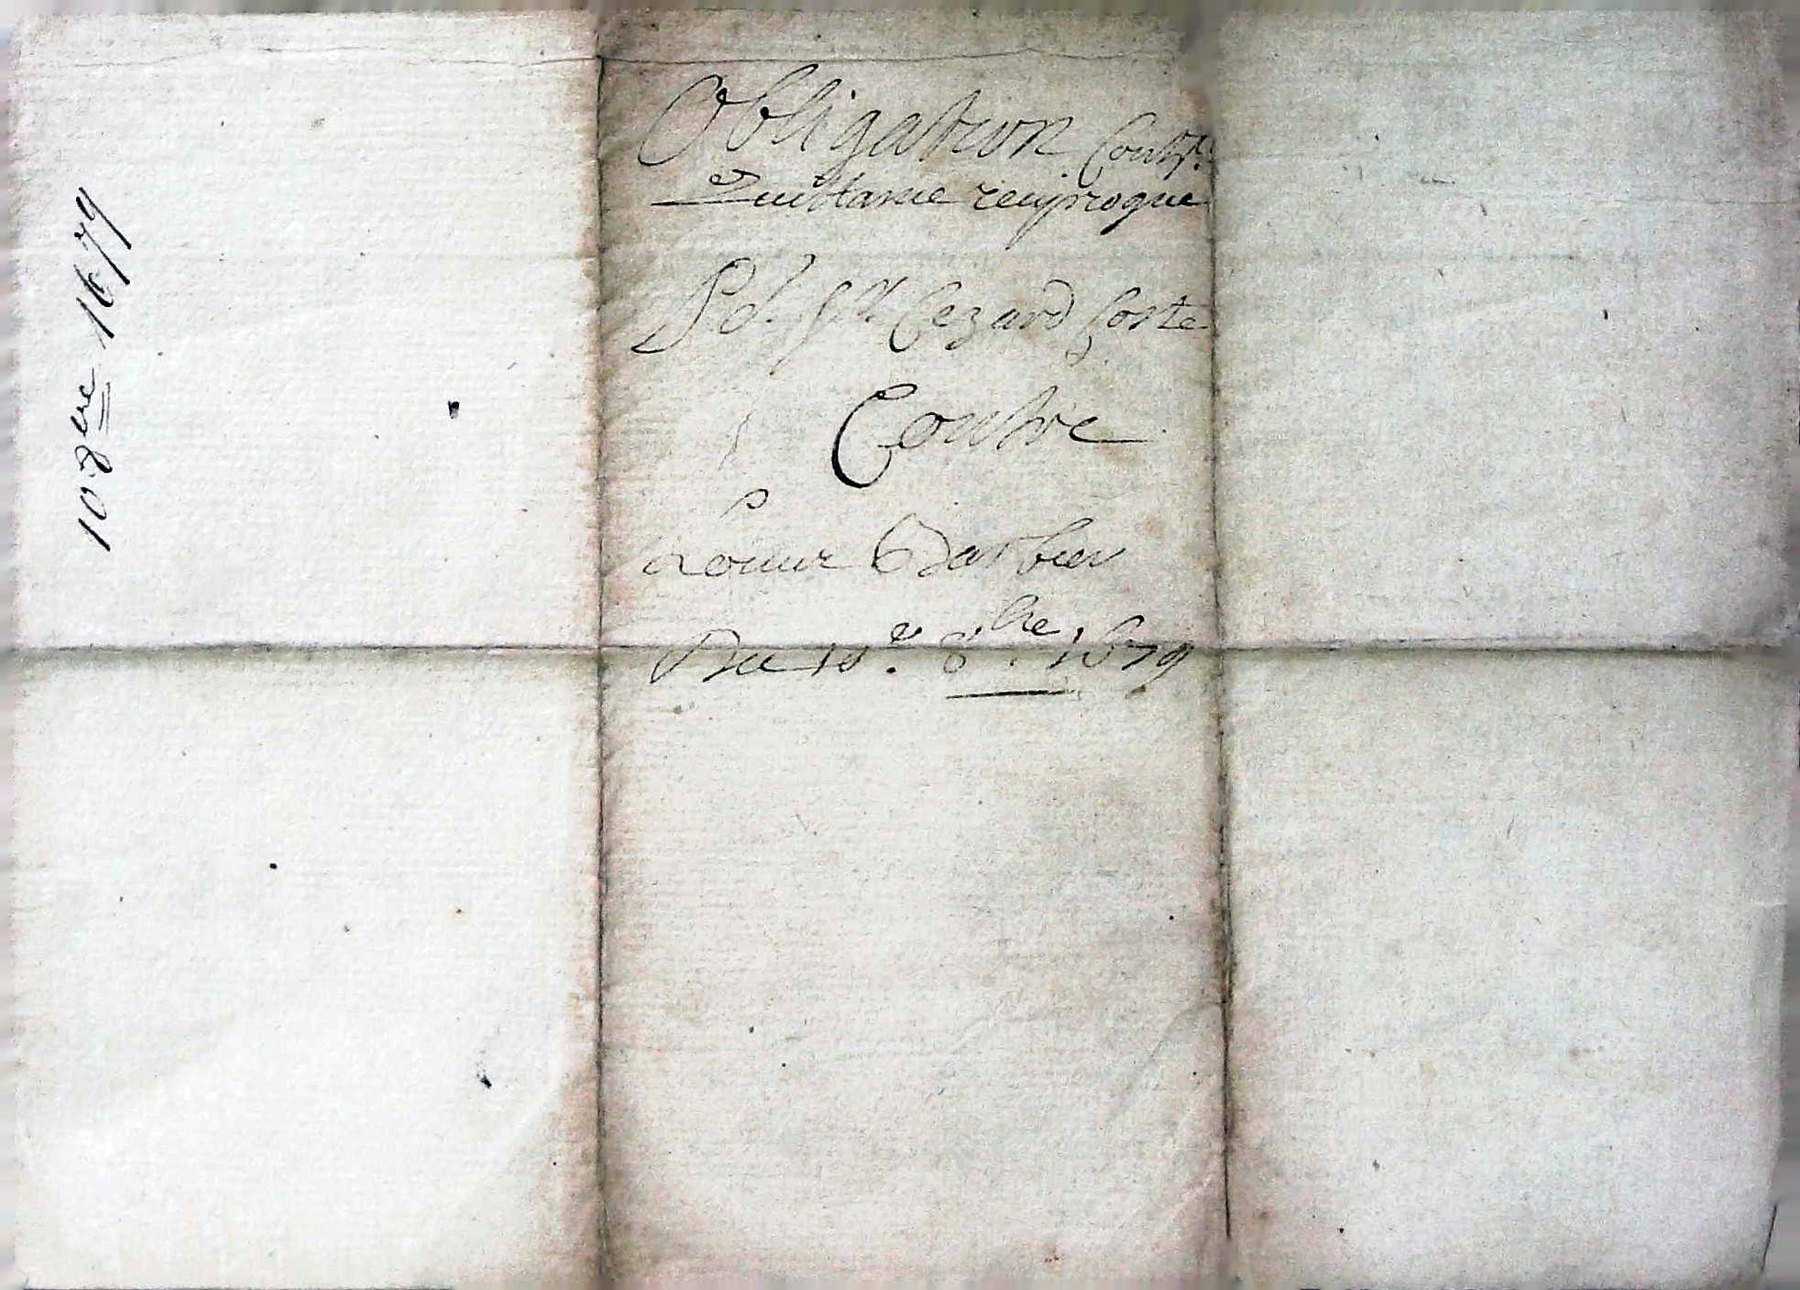 10 8bre 1679
Obligation Cont.t
Quittance reciproque
P.r S.r Cezard Coste
Contre
Louis Barbier
Du 10.e 8.bre 1679